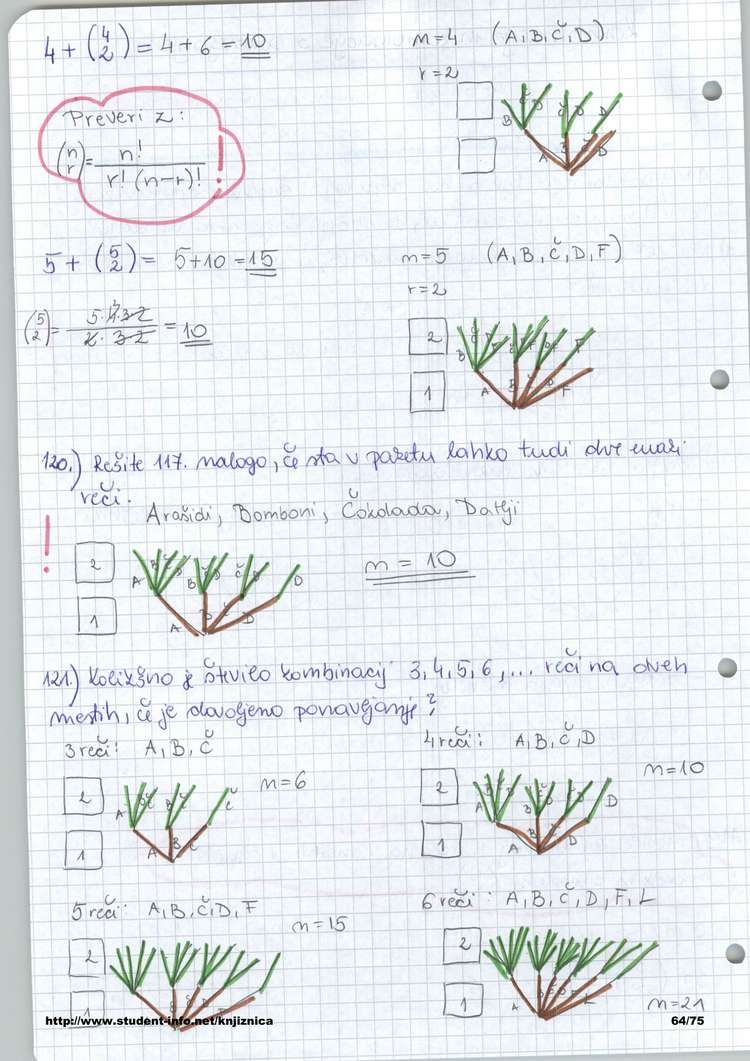 4 + (4 2) = 4 + 6 = 10
m = 4 (A, B, Č, D)
r = 2
Preveri z:
(n r) = n! / r! (n-r)!
!
5 + (5 2) = 5+10 = 15
m = 5 (A, B, Č, D, F)
r = 2
(5 2) = 5·4·3·2 / 2·3·2 = 10
2
1
120.) Rešite 117. nalogo, če sta v paketu lahko tudi dve enaki
reči.
Arašidi, Bomboni, Čokolada, Datlji
!
2
1
A B C D
m = 10
121.) Kolikšno je število kombinacij 3, 4, 5, 6, ... reči na dveh
mestih, če je dovoljeno ponavljanje?
3 reči: A, B, Č
4 reči: A, B, Č, D
2
1
m = 6
2
1
m = 10
5 reči: A, B, Č, D, F
6 reči: A, B, Č, D, F, L
2
1
m = 15
2
1
m = 21
http://www.student-info.net/knjiznica
64/75